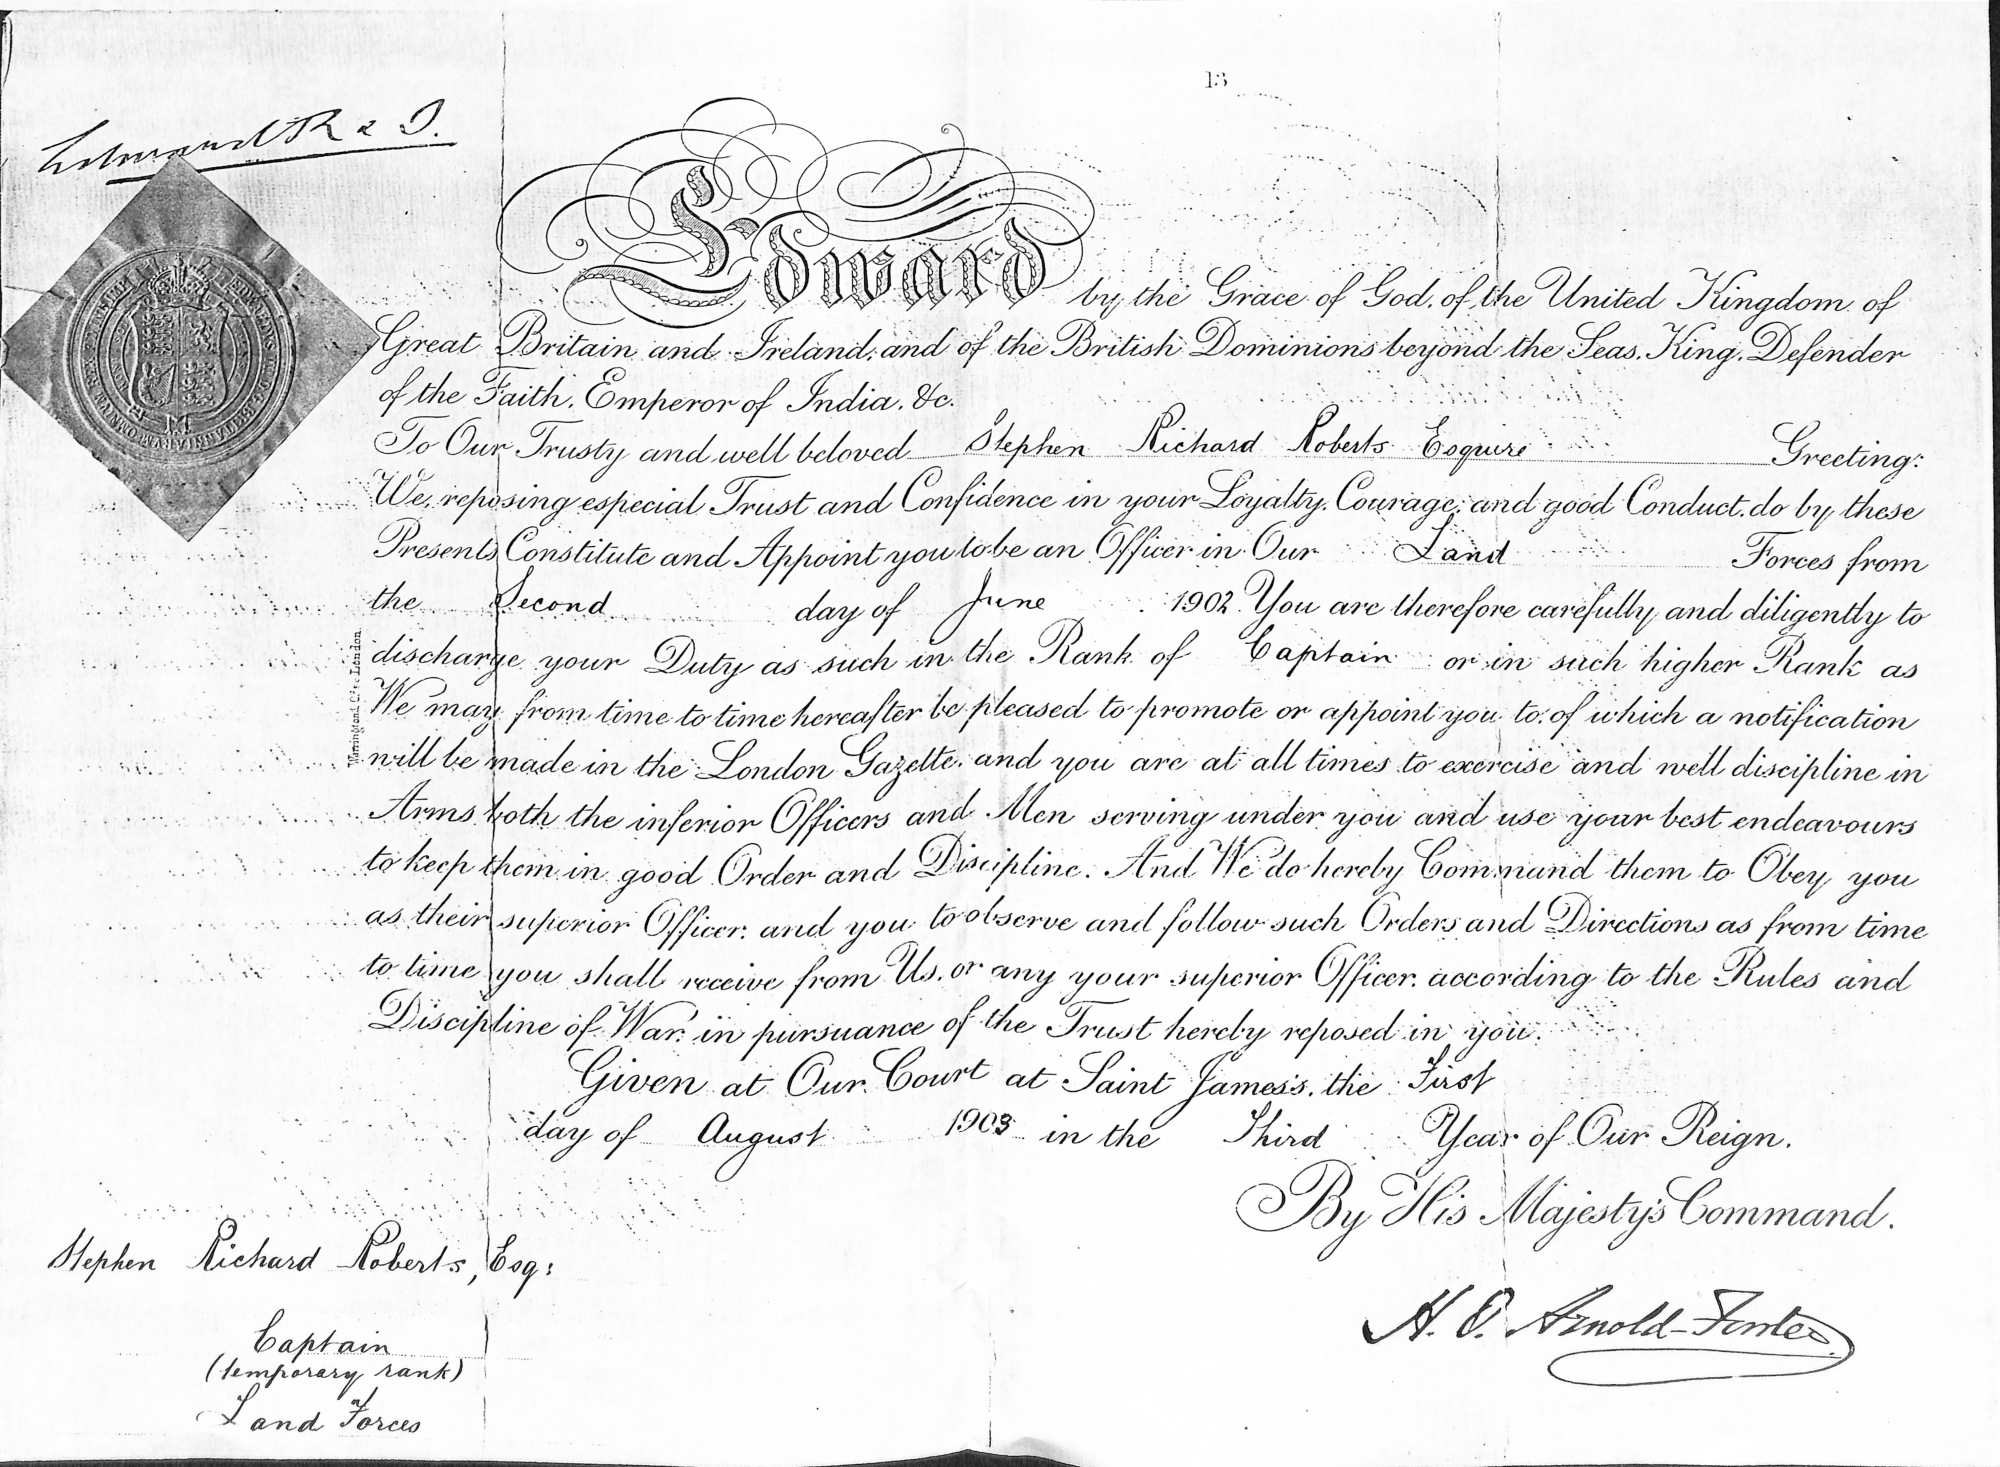 13
Edward R & I.
Edward by the Grace of God, of the United Kingdom of
Great Britain and Ireland, and of the British Dominions beyond the Seas, King, Defender
of the Faith, Emperor of India, &c.
To Our Trusty and well beloved Stephen Richard Roberts Esquire Greeting:
We, reposing especial Trust and Confidence in your Loyalty, Courage, and good Conduct, do by these
Presents Constitute and Appoint you to be an Officer in Our Land Forces from
the Second day of June 1902. You are therefore carefully and diligently to
discharge your Duty as such in the Rank of Captain or in such higher Rank as
We may from time to time hereafter be pleased to promote or appoint you to, of which a notification
will be made in the London Gazette, and you are at all times to exercise and well discipline in
Arms both the inferior Officers and Men serving under you and use your best endeavours
to keep them in good Order and Discipline. And We do hereby Command them to Obey you
as their superior Officer, and you to observe and follow such Orders and Directions as from time
to time you shall receive from Us, or any your superior Officer, according to the Rules and
Discipline of War, in pursuance of the Trust hereby reposed in you.
Given at Our Court at Saint James's, the First
day of August 1903 in the Third Year of Our Reign.
By His Majesty's Command.
H. O. Arnold-Forster
Stephen Richard Roberts, Esq:
Captain
(temporary rank)
Land Forces